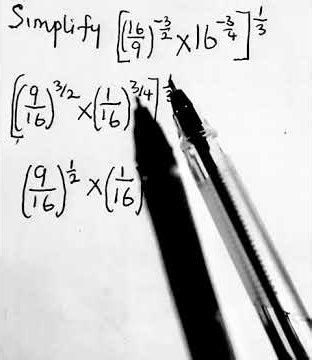 Simplify [(16/9)^-3/2 × 16^-3/4]^1/3
[(9/16)^3/2 × (1/16)^3/4]
(9/16)^1/2 × (1/16)